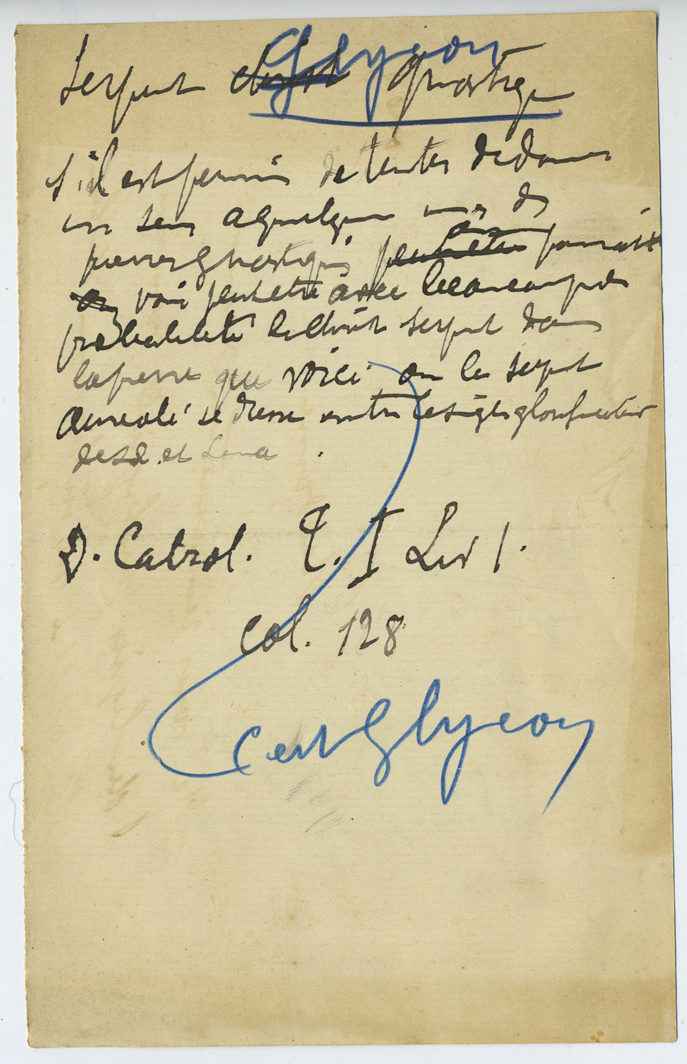 Glycon
Serpent christ gnostique
s'il est permis de tenter de donner
un sens a quelques unes des
pierres gnostiques peut etre on pourrait
on voir peut etre avec beaucoup de
probabilité le christ serpent dans
la pierre que voici ou le serpent
aureolé se dresse entre les sigles
de Sol et Luna .
D. Cabrol. T. I Liv 1.
col. 128
C'est Glycon